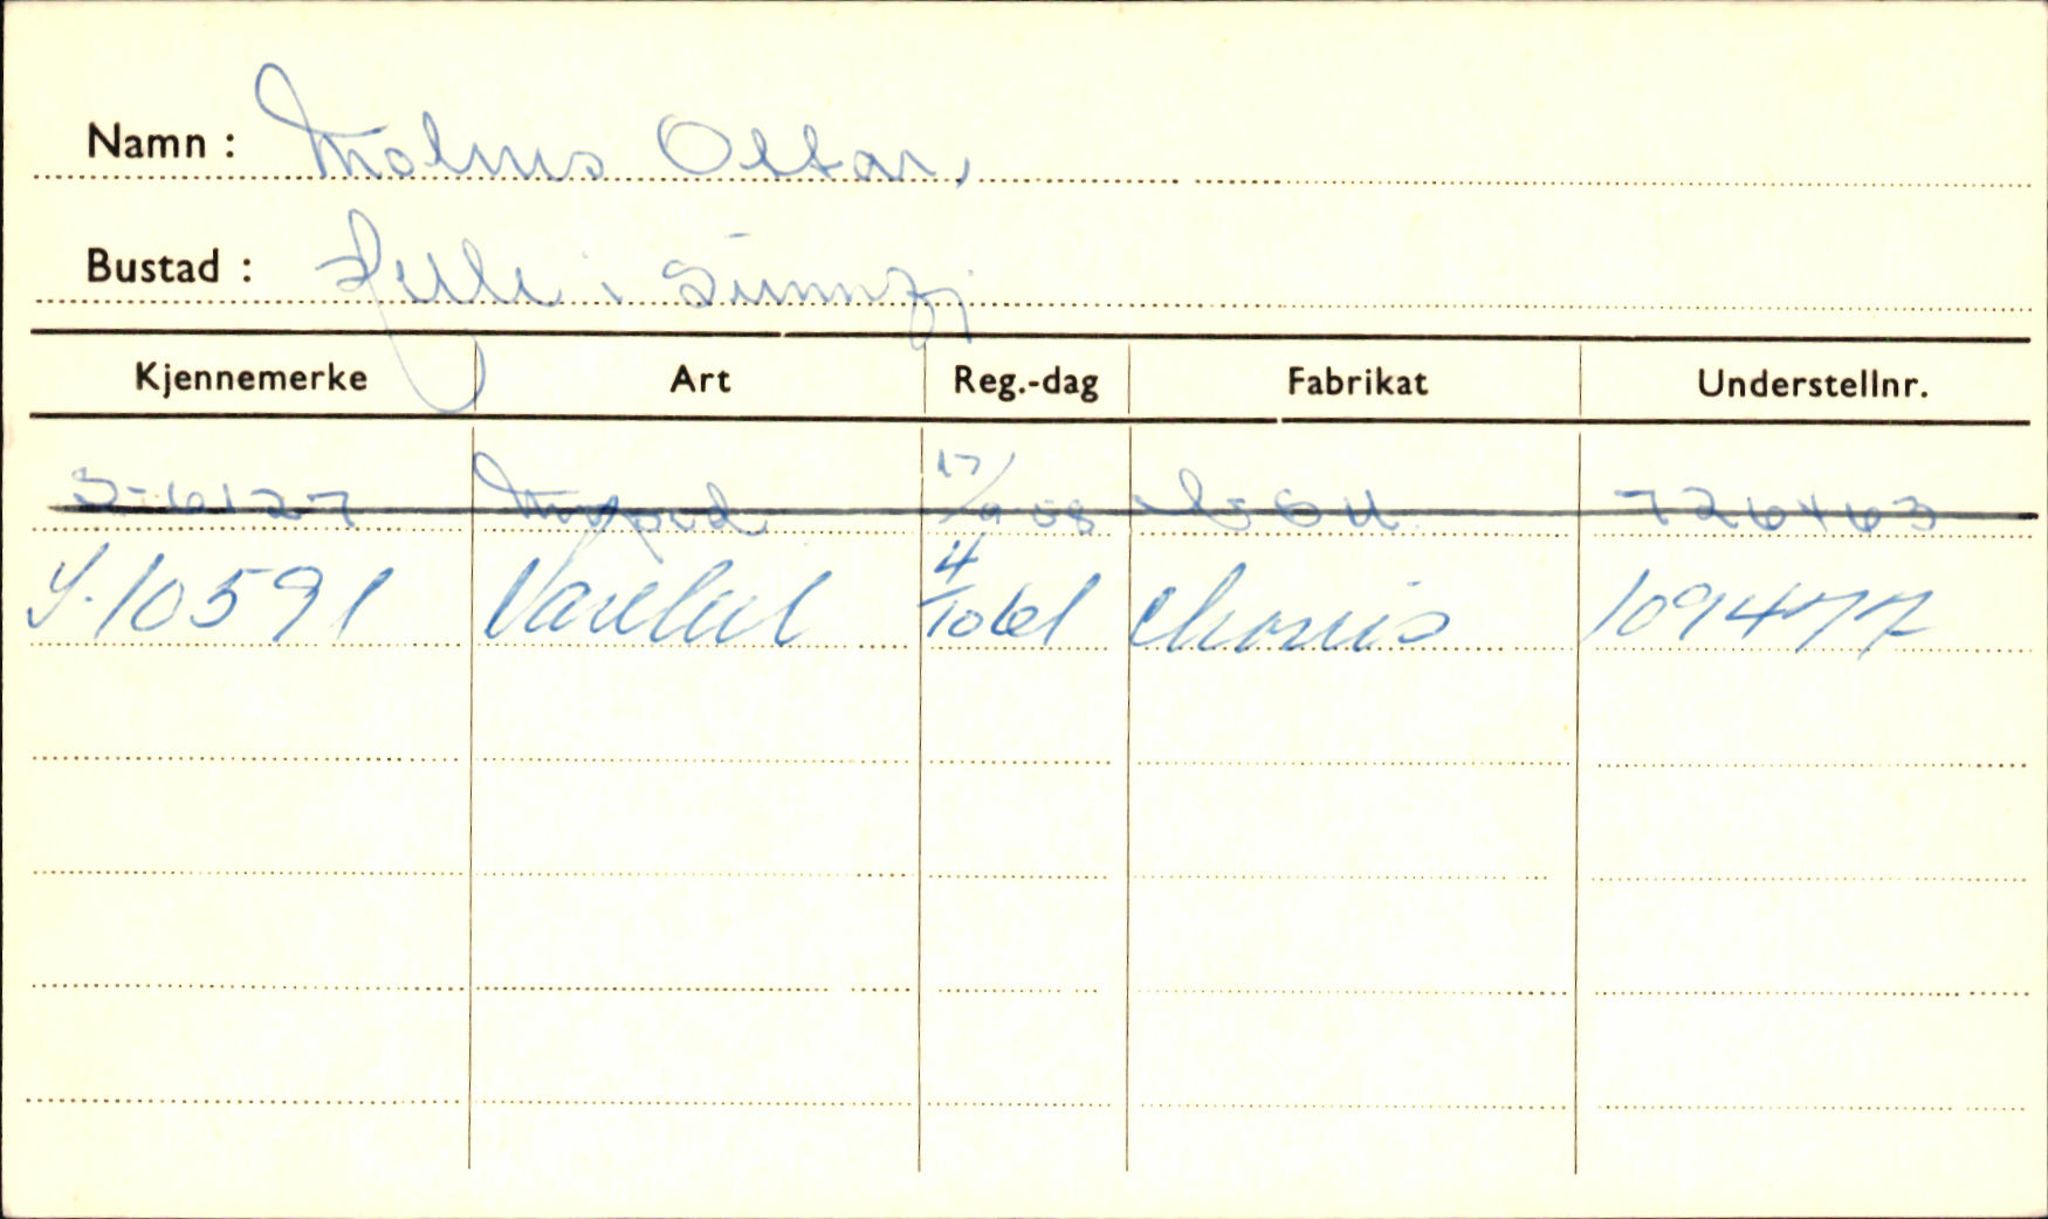 Namn : Molnes Ottar,
Bustad : Helle i Sunnfj
Kjennemerke Art Reg.-dag Fabrikat Understellnr.
S-6127 Moped 17/9 58 NSU 726463
S-10591 Varebil 4/10 61 Morris 109477